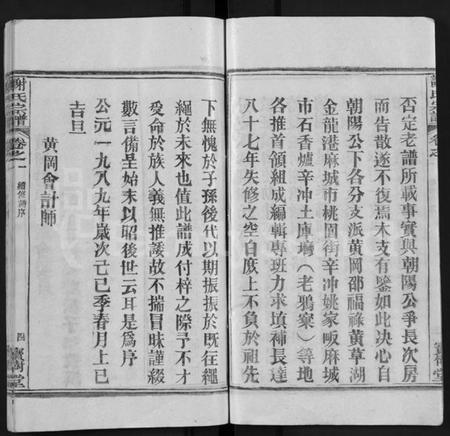 否定老譜所載事實與朝陽公爭長次房
而告散遂不復焉木支有鑒如此决心自
朝陽公下各分支派黄岡邵福祿黄草湖
金龍港麻城市桃園街辛冲姚家畈麻城
市石香爐辛冲土庫塆（老鴉寨）等地
各推首領組成編輯專班力求填補長達
八十七年失修之空白庶上不負於祖先
下無愧於子孫後代以期振振於既往繩
繩於未來也值此譜成付梓之際予不才
受命於族人義無推諉故不揣冒昧謹綴
數言備呈始末以昭後世云耳是為序
公元一九八九年歲次己巳季春月上巳
吉旦
黄岡會計師
謝氏宗譜
卷之一
續修譜序
四
寶樹堂